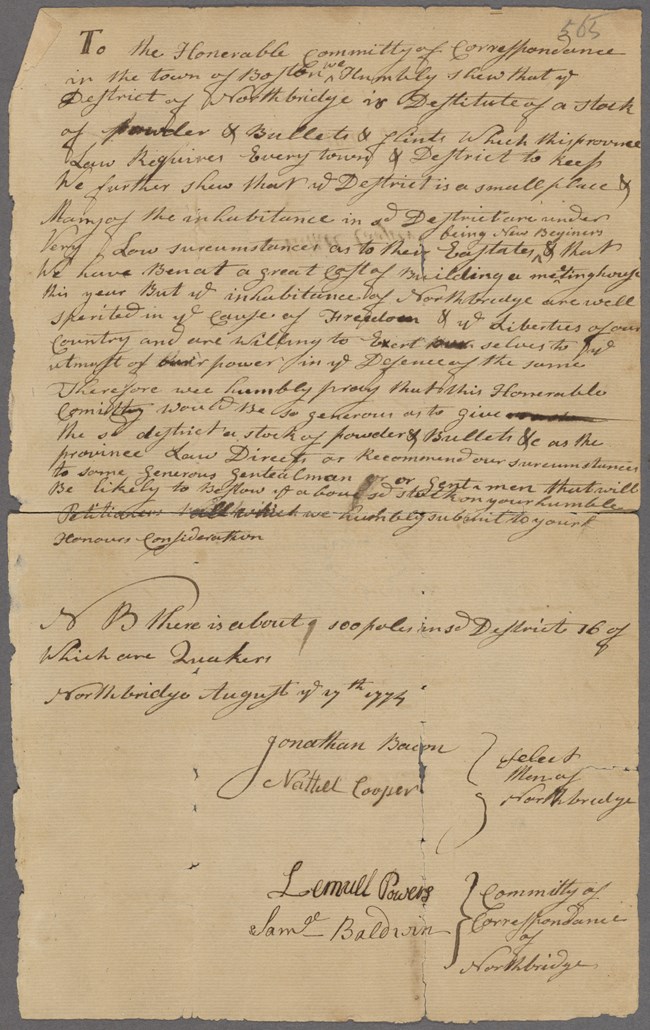 565
To the Honerable Committy of Correspondance
in the town of Boston we Humbly shew that ye
District of Northbridge is Destitute of a stock
of powder & Bullets & flints Which this province
Law Requires Every town & District to keep
We further shew that ye District is a small place &
Many of the inhabitance in sd District are under
being New Beginers
Very Low surcumstances as to their Eastates & that
We have Ben at a great Cost of Building a meetinghouse
this year But ye inhabitance of Northbridge are well
sperited in ye Cause of Freedom & ye Liberties of our
Country and are Willing to Exert our selves to ye
utmost of our power in ye Defence of the same
Therefore wee humbly pray that this Honerable
Comitty Would Be so generous as to give
the sd district a stock of powder & Bullets &c as the
province Law Directs or Recommend our surcumstances
to some generous gentealman or Gentmen that will
Be likely to Bestow ye abou sd stock on your humble
Petitioners all which we humbly submit to your
Honours Consideration
N B there is about 100 poles in sd District 16 of
Which are Quakers
Northbridge August ye 17th 1774
Jonathan Bacon
Nathll Cooper
Select
Men of
Northbridge
Lemuell Powers
Samll Baldwin
Committy of
Correspondance
of
Northbridge